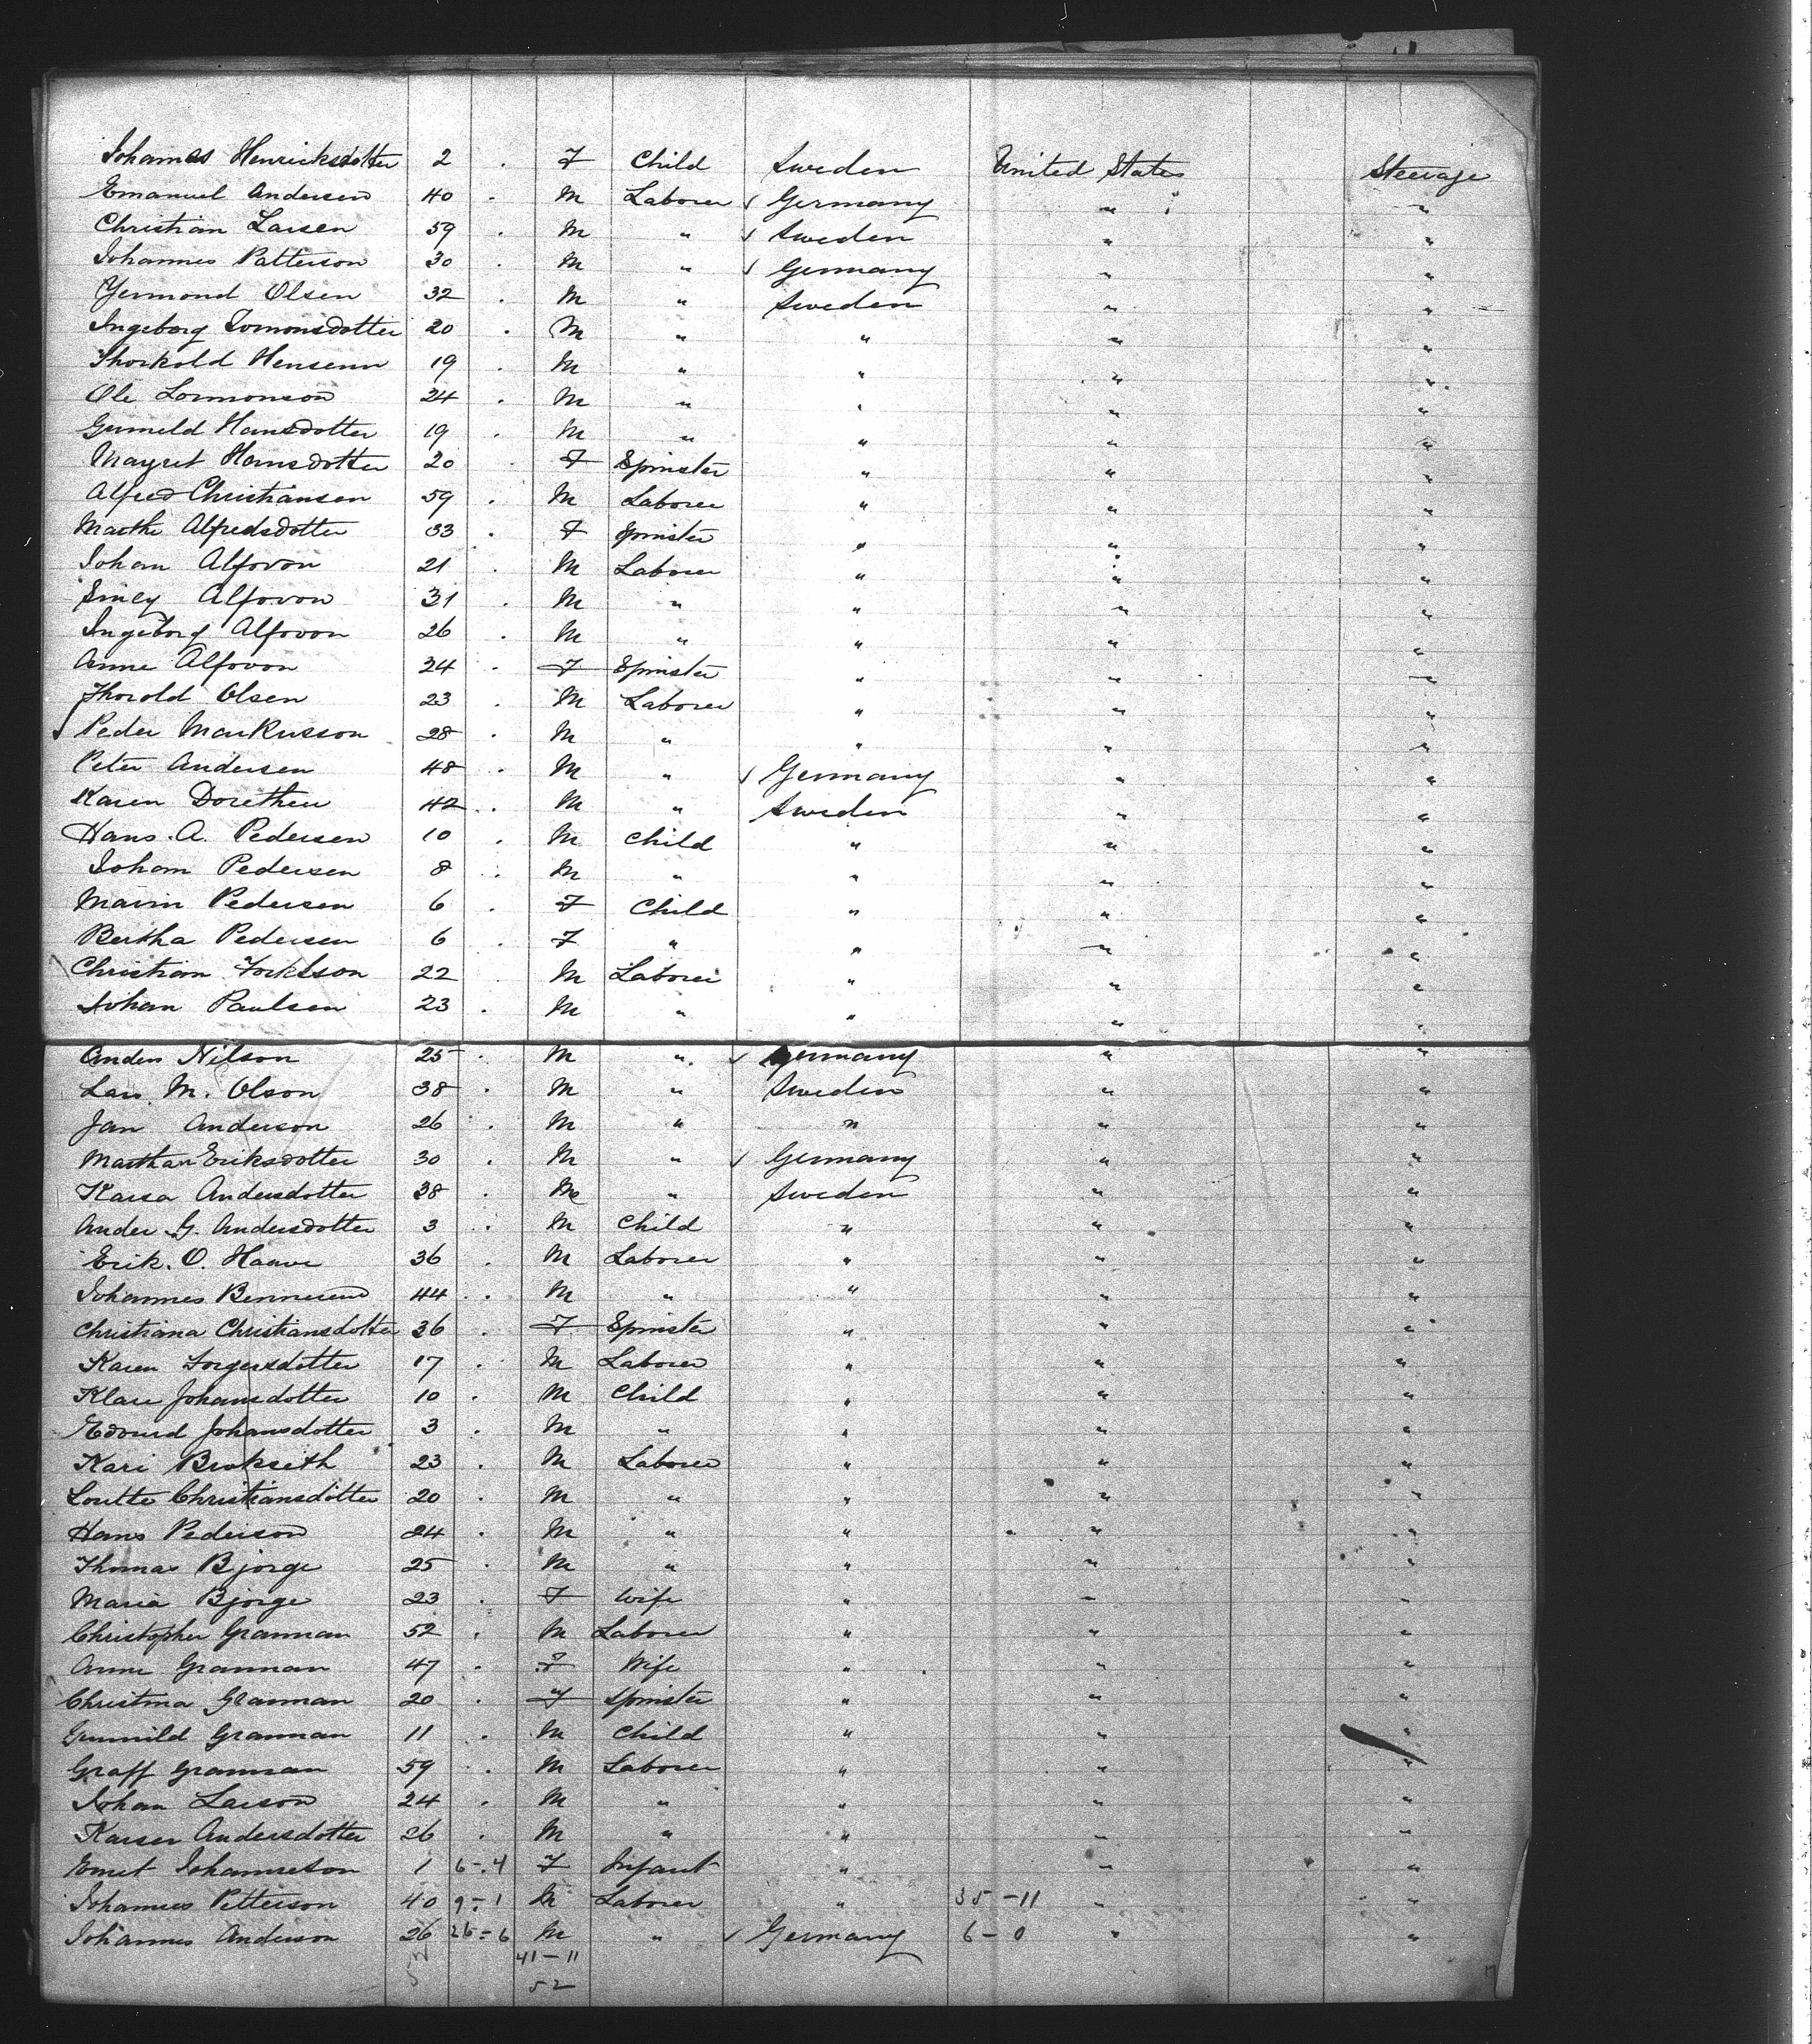 Johannes Henricksdotter 2 . F Child Sweden United States Steerage
Emanuel Andersen 40 . M Laborer √ Germany " "
Christian Larsen 59 . M " √ Sweden " "
Johannes Patterson 30 . M " √ Germany " "
Yermond Olsen 32 . M " Sweden " "
Ingeborg Tomonsdotter 20 . M " " " "
Thorkold Hensenn 19 . M " " " "
Ole Lormonson 24 . M " " " "
Gunneld Hansdotter 19 . M " " " "
Mayret Hansdotter 20 . F Spinster " " "
Alfred Christiansen 59 . M Laborer " " "
Marthe Alfredsdotter 33 . F Spinster " " "
Johan Alfovon 21 . M Laborer " " "
Siney Alfovon 31 . M " " " "
Ingeborg Alfovon 26 . M " " " "
Anne Alfovon 24 . F Spinster " " "
Thorold Olsen 23 . M Laborer " " "
Peder Markusson 28 . M " " " "
Peter Andersen 48 . M " √ Germany " "
Karen Dorethea 42 . M " Sweden " "
Hans. A. Pedersen 10 . M Child " " "
Johan Pedersen 8 . M " " " "
Marin Pedersen 6 . F Child " " "
Bertha Pedersen 6 . F " " " "
Christian Torkelson 22 M Laborer " " "
Johan Paulsen 23 . M " " " "
Anders Nilson 25 . M " √ Germany " "
Lars M. Olson 38 . M " Sweden " "
Jan Anderson 26 . M " " " "
Marthan Eriksdotter 30 . M " √ Germany " "
Kaisa Andersdotter 38 . M " Sweden " "
Ander G. Andersdotter 3 . M Child " " "
Erik. O. Haave 36 . M Laborer " " "
Johannes Bennesend 44 . M " " " "
Christiana Christiansdotter 36 . F Spinster " " "
Karen Torgersdotter 17 . M Laborer " " "
Klare Johansdotter 10 . M Child " " "
Edourd Johansdotter 3 . M " " " "
Kari Brokseth 23 . M Laborer " " "
Loutte Christiansdotter 20 . M " " " "
Hans Pederson 24 . M " " " "
Thomas Bjorge 25 . M " " " "
Maria Bjorge 23 . F Wife " " "
Christopher Granman 52 . M Laborer " " "
Anne Granman 47 . F Wife " " "
Christina Granman 20 . F Spinster " " "
Gunnild Granman 11 . M Child " " "
Graff Granman 59 . M Laborer " " "
Johan Larson 24 . M " " " "
Karsen Andersdotter 26 . M " " " "
Ernst Johanneson 1 6-4 F Infant " " "
Johannes Petterson 40 9-1 M Laborer " 35-11 " "
Johannes Anderson 26 26=6 M " √ Germany 6-0 " "
52 41-11
52